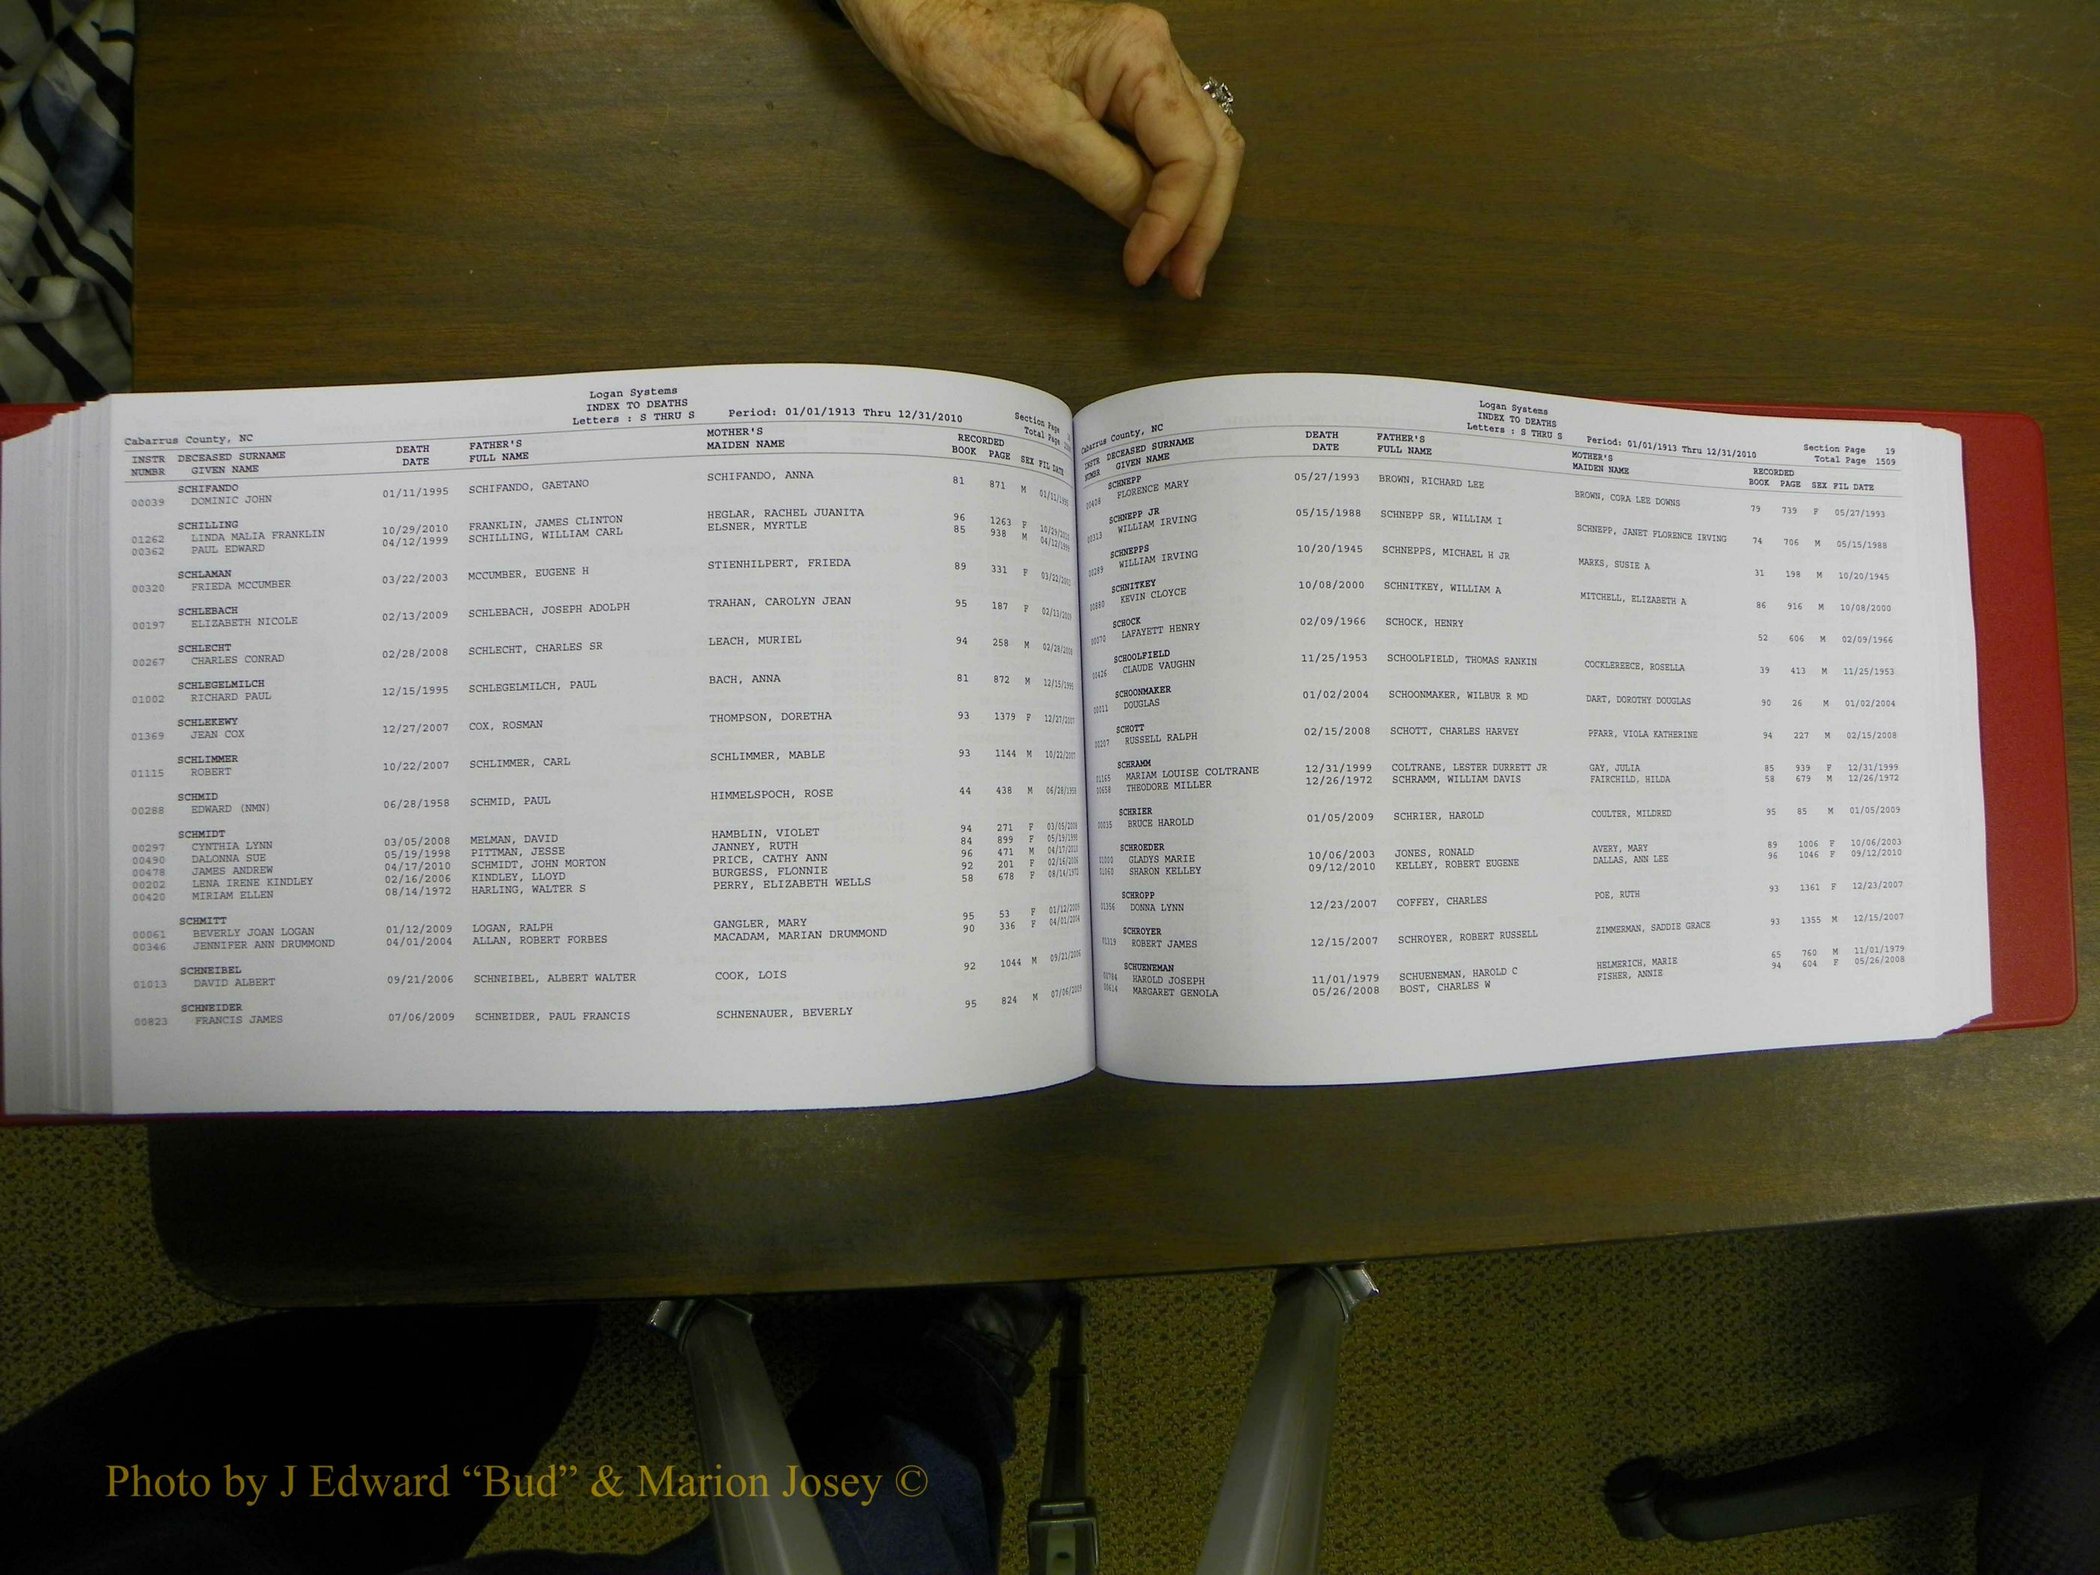 Logan Systems
INDEX TO DEATHS
Letters : S THRU S Period: 01/01/1913 Thru 12/31/2010 Section Page
Cabarrus County, NC Total Page
INSTR DECEASED SURNAME DEATH FATHER'S MOTHER'S RECORDED
NUMBR GIVEN NAME DATE FULL NAME MAIDEN NAME BOOK PAGE SEX FIL DATE
SCHIFANDO
00039 DOMINIC JOHN 01/11/1995 SCHIFANDO, GAETANO SCHIFANDO, ANNA 81 871 M 01/11/1995
SCHILLING
01262 LINDA MALIA FRANKLIN 10/29/2010 FRANKLIN, JAMES CLINTON HEGLAR, RACHEL JUANITA 96 1263 F 10/29/2010
00362 PAUL EDWARD 04/12/1999 SCHILLING, WILLIAM CARL ELSNER, MYRTLE 85 938 M 04/12/1999
SCHLAMAN
00320 FRIEDA MCCUMBER 03/22/2003 MCCUMBER, EUGENE H STIENHILPERT, FRIEDA 89 331 F 03/22/2003
SCHLEBACH
00197 ELIZABETH NICOLE 02/13/2009 SCHLEBACH, JOSEPH ADOLPH TRAHAN, CAROLYN JEAN 95 187 F 02/13/2009
SCHLECHT
00267 CHARLES CONRAD 02/28/2008 SCHLECHT, CHARLES SR LEACH, MURIEL 94 258 M 02/28/2008
SCHLEGELMILCH
01002 RICHARD PAUL 12/15/1995 SCHLEGELMILCH, PAUL BACH, ANNA 81 872 M 12/15/1995
SCHLEKEWY
01369 JEAN COX 12/27/2007 COX, ROSMAN THOMPSON, DORETHA 93 1379 F 12/27/2007
SCHLIMMER
01115 ROBERT 10/22/2007 SCHLIMMER, CARL SCHLIMMER, MABLE 93 1144 M 10/22/2007
SCHMID
00288 EDWARD (NMN) 06/28/1958 SCHMID, PAUL HIMMELSPOCH, ROSE 44 438 M 06/28/1958
SCHMIDT
00297 CYNTHIA LYNN 03/05/2008 MELMAN, DAVID HAMBLIN, VIOLET 94 271 F 03/05/2008
00490 DALONNA SUE 05/19/1998 PITTMAN, JESSE JANNEY, RUTH 84 899 F 05/19/1998
00478 JAMES ANDREW 04/17/2010 SCHMIDT, JOHN MORTON PRICE, CATHY ANN 96 471 M 04/17/2010
00202 LENA IRENE KINDLEY 02/16/2006 KINDLEY, LLOYD BURGESS, FLONNIE 92 201 F 02/16/2006
00420 MIRIAM ELLEN 08/14/1972 HARLING, WALTER S PERRY, ELIZABETH WELLS 58 678 F 08/14/1972
SCHMITT
00061 BEVERLY JOAN LOGAN 01/12/2009 LOGAN, RALPH GANGLER, MARY 95 53 F 01/12/2009
00346 JENNIFER ANN DRUMMOND 04/01/2004 ALLAN, ROBERT FORBES MACADAM, MARIAN DRUMMOND 90 336 F 04/01/2004
SCHNEIBEL
01013 DAVID ALBERT 09/21/2006 SCHNEIBEL, ALBERT WALTER COOK, LOIS 92 1044 M 09/21/2006
SCHNEIDER
00823 FRANCIS JAMES 07/06/2009 SCHNEIDER, PAUL FRANCIS SCHNENAUER, BEVERLY 95 824 M 07/06/2009
Logan Systems
INDEX TO DEATHS
Letters : S THRU S Period: 01/01/1913 Thru 12/31/2010 Section Page 19
Cabarrus County, NC Total Page 1509
INSTR DECEASED SURNAME DEATH FATHER'S MOTHER'S RECORDED
NUMBR GIVEN NAME DATE FULL NAME MAIDEN NAME BOOK PAGE SEX FIL DATE
SCHNEPP
00408 FLORENCE MARY 05/27/1993 BROWN, RICHARD LEE BROWN, CORA LEE DOWNS 79 739 F 05/27/1993
SCHNEPP JR
00313 WILLIAM IRVING 05/15/1988 SCHNEPP SR, WILLIAM I SCHNEPP, JANET FLORENCE IRVING 74 706 M 05/15/1988
SCHNEPPS
00289 WILLIAM IRVING 10/20/1945 SCHNEPPS, MICHAEL H JR MARKS, SUSIE A 31 198 M 10/20/1945
SCHNITKEY
00880 KEVIN CLOYCE 10/08/2000 SCHNITKEY, WILLIAM A MITCHELL, ELIZABETH A 86 916 M 10/08/2000
SCHOCK
00070 LAFAYETT HENRY 02/09/1966 SCHOCK, HENRY 52 606 M 02/09/1966
SCHOOLFIELD
00426 CLAUDE VAUGHN 11/25/1953 SCHOOLFIELD, THOMAS RANKIN COCKLEREECE, ROSELLA 39 413 M 11/25/1953
SCHOONMAKER
00011 DOUGLAS 01/02/2004 SCHOONMAKER, WILBUR R MD DART, DOROTHY DOUGLAS 90 26 M 01/02/2004
SCHOTT
00207 RUSSELL RALPH 02/15/2008 SCHOTT, CHARLES HARVEY PFARR, VIOLA KATHERINE 94 227 M 02/15/2008
SCHRAMM
01165 MARIAM LOUISE COLTRANE 12/31/1999 COLTRANE, LESTER DURRETT JR GAY, JULIA 85 939 F 12/31/1999
00658 THEODORE MILLER 12/26/1972 SCHRAMM, WILLIAM DAVIS FAIRCHILD, HILDA 58 679 M 12/26/1972
SCHRIER
00035 BRUCE HAROLD 01/05/2009 SCHRIER, HAROLD COULTER, MILDRED 95 85 M 01/05/2009
SCHROEDER
01000 GLADYS MARIE 10/06/2003 JONES, RONALD AVERY, MARY 89 1006 F 10/06/2003
01060 SHARON KELLEY 09/12/2010 KELLEY, ROBERT EUGENE DALLAS, ANN LEE 96 1046 F 09/12/2010
SCHROPP
01356 DONNA LYNN 12/23/2007 COFFEY, CHARLES POE, RUTH 93 1361 F 12/23/2007
SCHROYER
01319 ROBERT JAMES 12/15/2007 SCHROYER, ROBERT RUSSELL ZIMMERMAN, SADDIE GRACE 93 1355 M 12/15/2007
SCHUENEMAN
00704 HAROLD JOSEPH 11/01/1979 SCHUENEMAN, HAROLD C HELMERICH, MARIE 65 760 M 11/01/1979
00614 MARGARET GENOLA 05/26/2008 BOST, CHARLES W FISHER, ANNIE 94 604 F 05/26/2008
Photo by J Edward “Bud” & Marion Josey ©